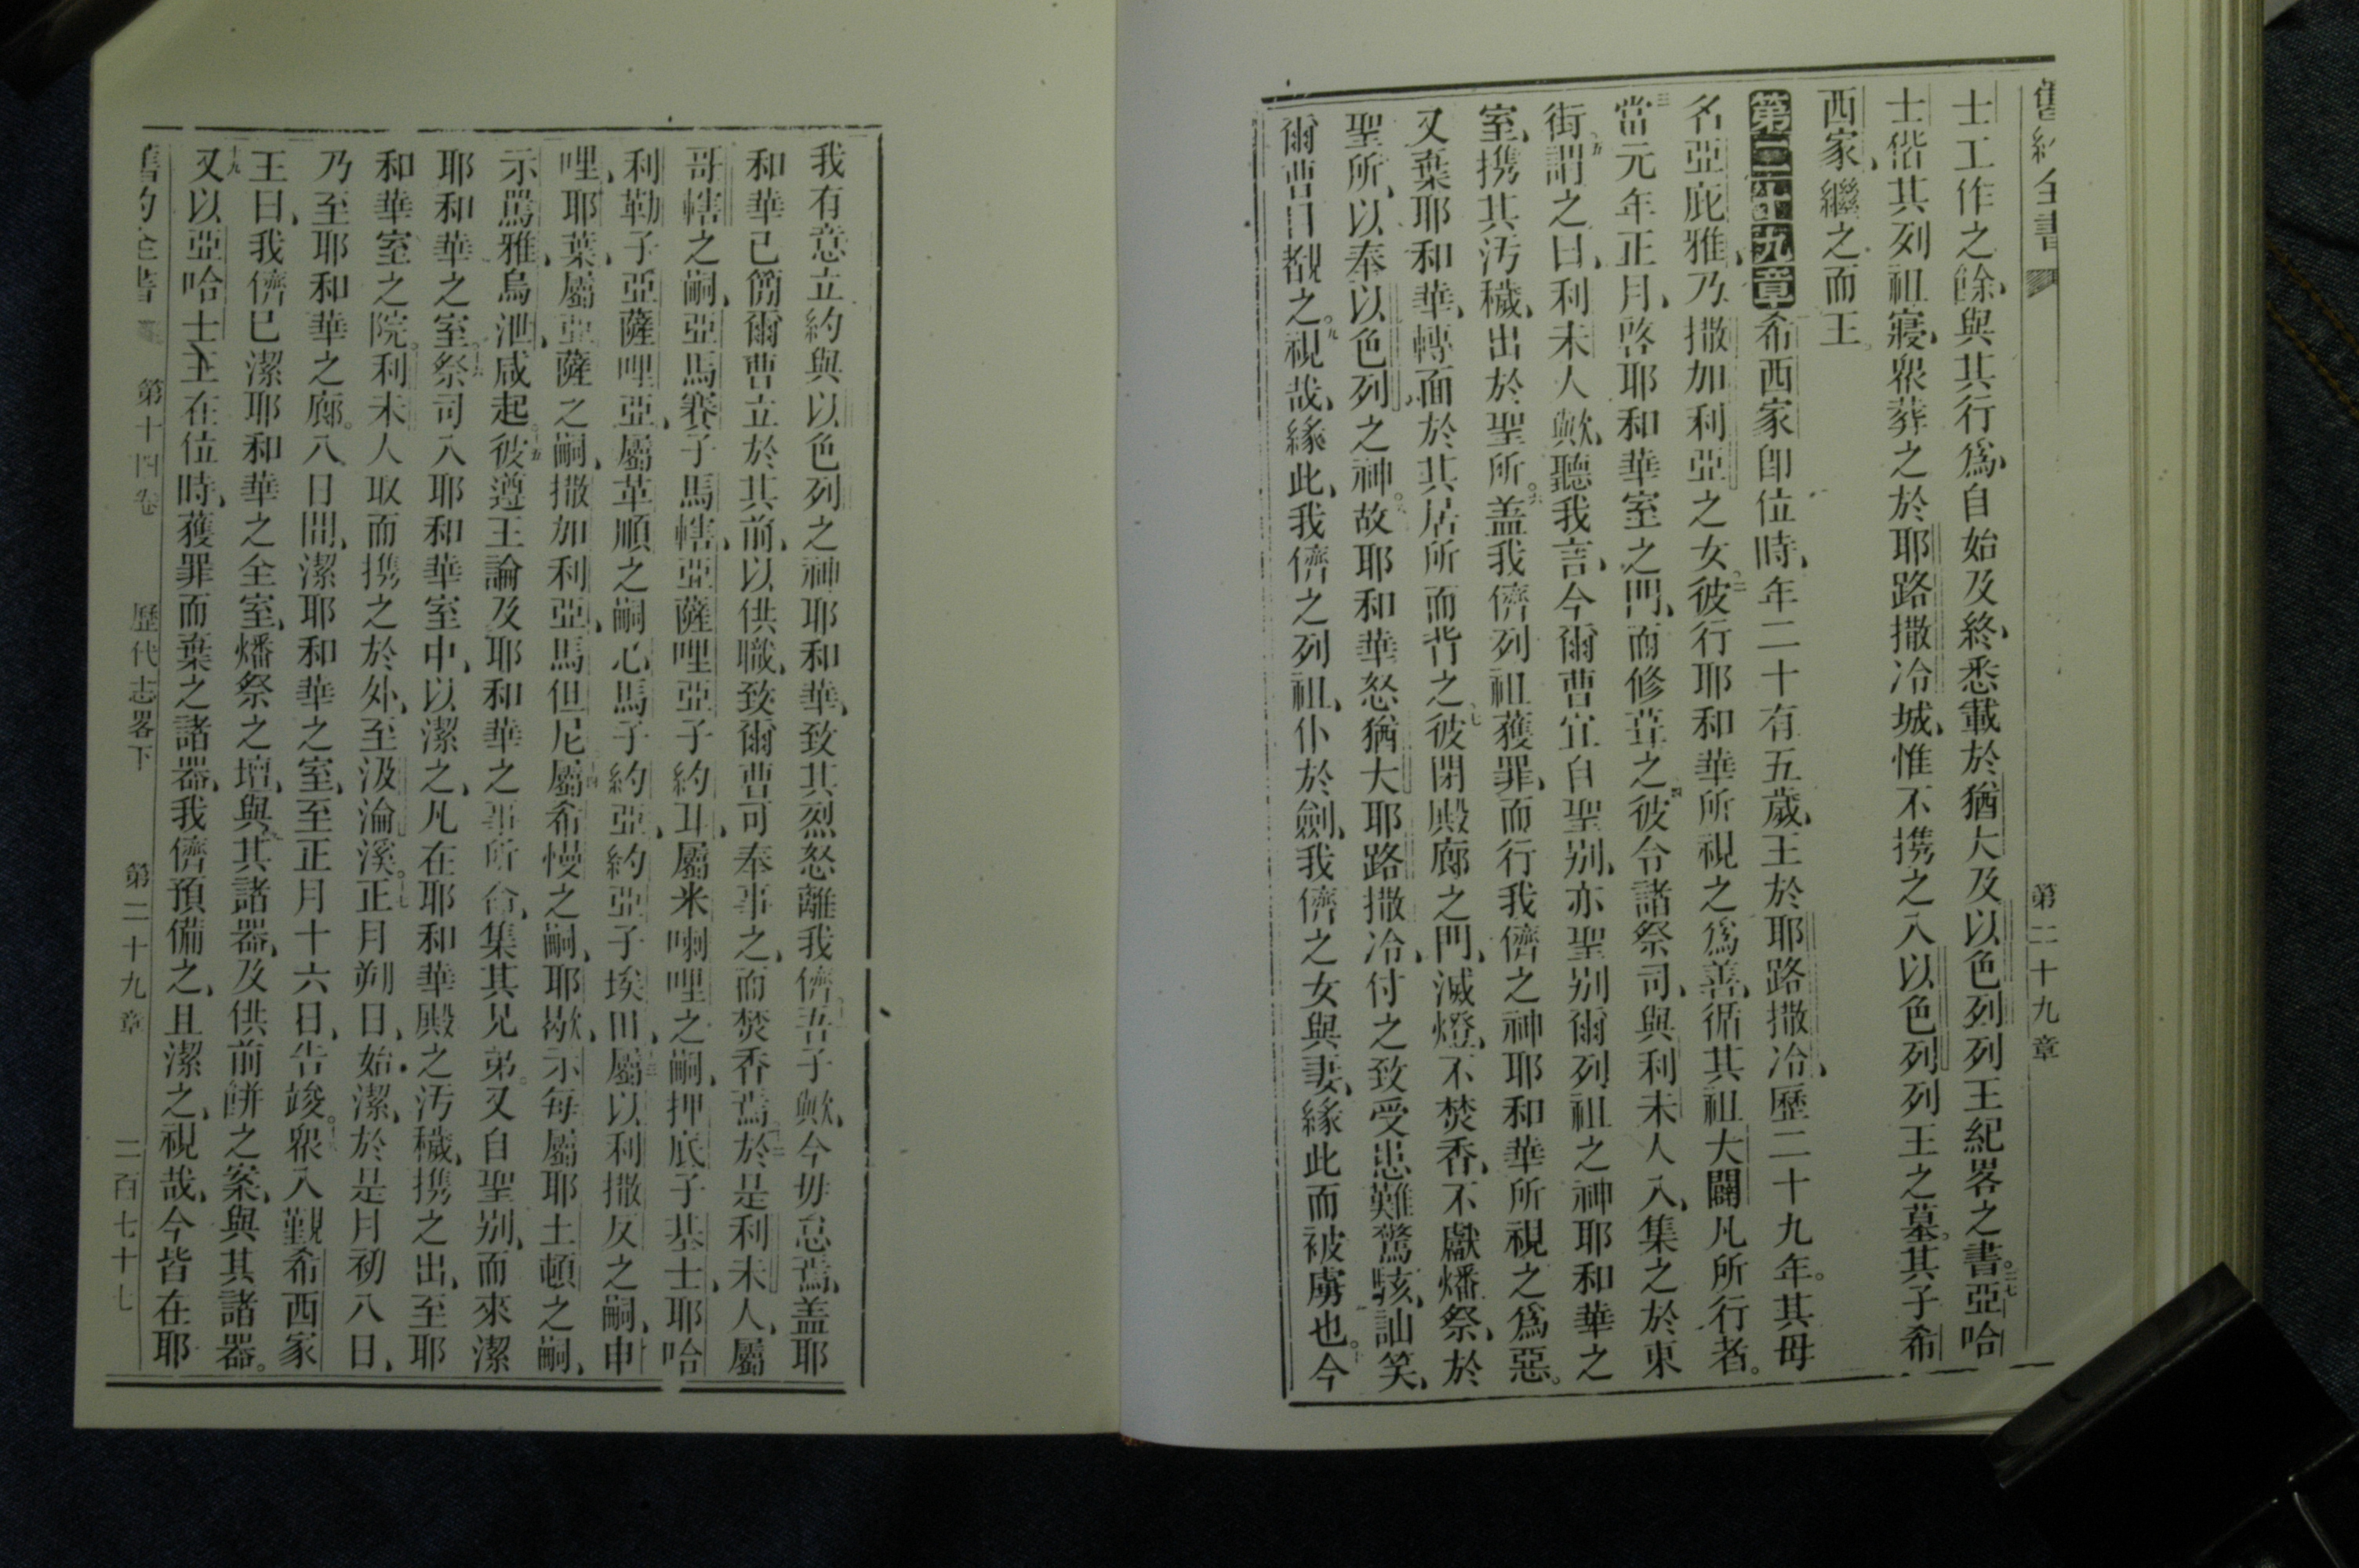 舊約全書 第二十九章
士工作之餘、與其行爲、自始及終、悉載於猶大及以色列列王紀畧之書。二七亞哈
士偕其列祖寢、衆葬之於耶路撒冷城、惟不携之入以色列列王之墓。其子希
西家、繼之而王。
第二十九章希西家卽位時、年二十有五歲、王於耶路撒冷、歷二十九年。其母
名亞庇雅、乃撒加利亞之女。二彼行耶和華所視之爲善、循其祖大闢凡所行者。
三當元年正月、啓耶和華室之門、而修葺之。四彼令諸祭司、與利未人入、集之於東
街、五謂之曰、利未人歟、聽我言、今爾曹宜自聖別、亦聖別爾列祖之神耶和華之
室、携其汚穢、出於聖所。六盖我儕列祖獲罪、而行我儕之神耶和華所視之爲惡。
又棄耶和華、轉面於其居所而背之。七彼閉殿廊之門、滅燈、不焚香、不獻燔祭、於
聖所、以奉以色列之神。八故耶和華怒猶大耶路撒冷、付之致受患難驚駭、訕笑、
爾曹目覩之。九視哉、緣此、我儕之列祖、仆於劍、我儕之女與妻、緣此而被虜也。十今
我有意立約與以色列之神耶和華、致其烈怒離我儕。十一吾子歟、今毋怠焉、盖耶
和華已簡爾曹立於其前、以供職、致爾曹可奉事之、而焚香焉。十二於是利未人、屬
哥轄之嗣、亞馬賽子馬轄、亞薩哩亞子約耳、屬米喇哩之嗣、押底子基士、耶哈
利勒子亞薩哩亞、屬革順之嗣心馬子約亞、約亞子埃田、十三屬以利撒反之嗣、申
哩、耶葉、屬亞薩之嗣、撒加利亞、馬但尼、十四屬希慢之嗣、耶歇、示每、屬耶土頓之嗣、
示罵雅、烏泄、咸起。十五彼遵王諭及耶和華之事所命、集其兄弟、又自聖別、而來潔
耶和華之室。十六祭司入耶和華室中、以潔之、凡在耶和華殿之汚穢、携之出、至耶
和華室之院。利未人取而携之於外、至汲淪溪。十七正月朔日、始潔、於是月初八日、
乃至耶和華之廊。八日間、潔耶和華之室、至正月十六日、告竣。十八衆入覲希西家
王曰、我儕已潔耶和華之全室、燔祭之壇、與其諸器、及供前餅之案、與其諸器。
十九又以亞哈士王在位時、獲罪而棄之諸器、我儕預備之、且潔之、視哉、今皆在耶
舊約全書 第十四卷 歷代志畧下 第二十九章 二百七十七